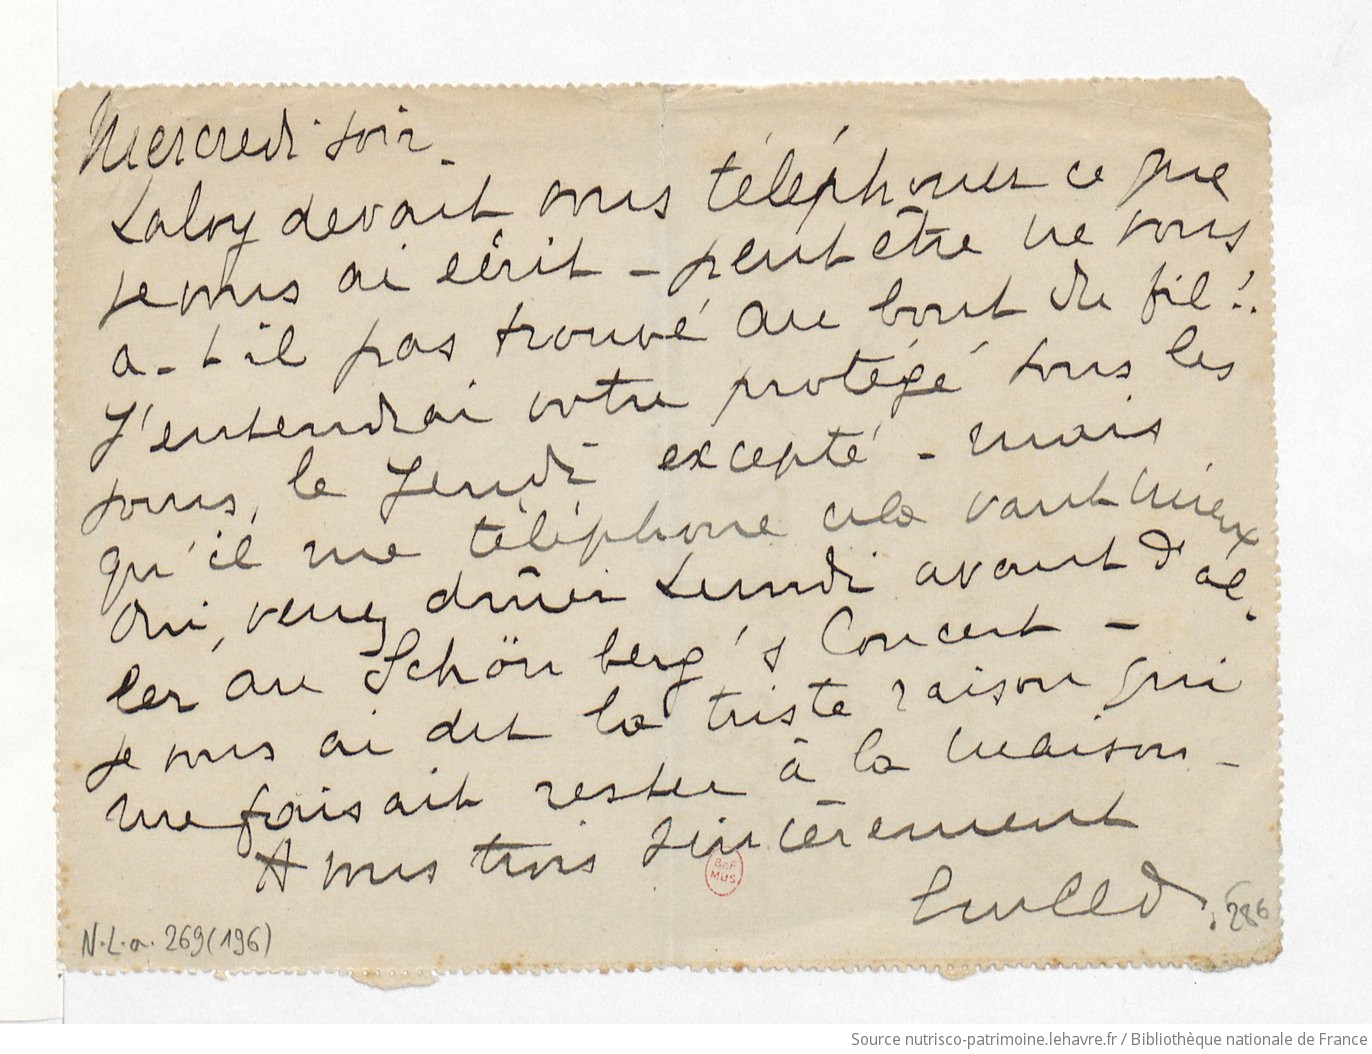 Mercredi soir.
Laloy devait vous téléphoner ce que
je vous ai écrit - peut être ne vous
a-t-il pas trouvé au bout du fil !.
J'entendrai votre protégé tous les
jours, le Jeudi excepté - mais
qu'il me téléphone cela vaut mieux
Oui, venez dîner Lundi avant d'al-
ler au Schönberg's Concert -
je vous ai dit la triste raison qui
me faisait rester à la maison -
A vous trois sincèrement
BnF
MUS
N.L.a. 269 (196)
286
Source nutrisco-patrimoine.lehavre.fr / Bibliothèque nationale de France